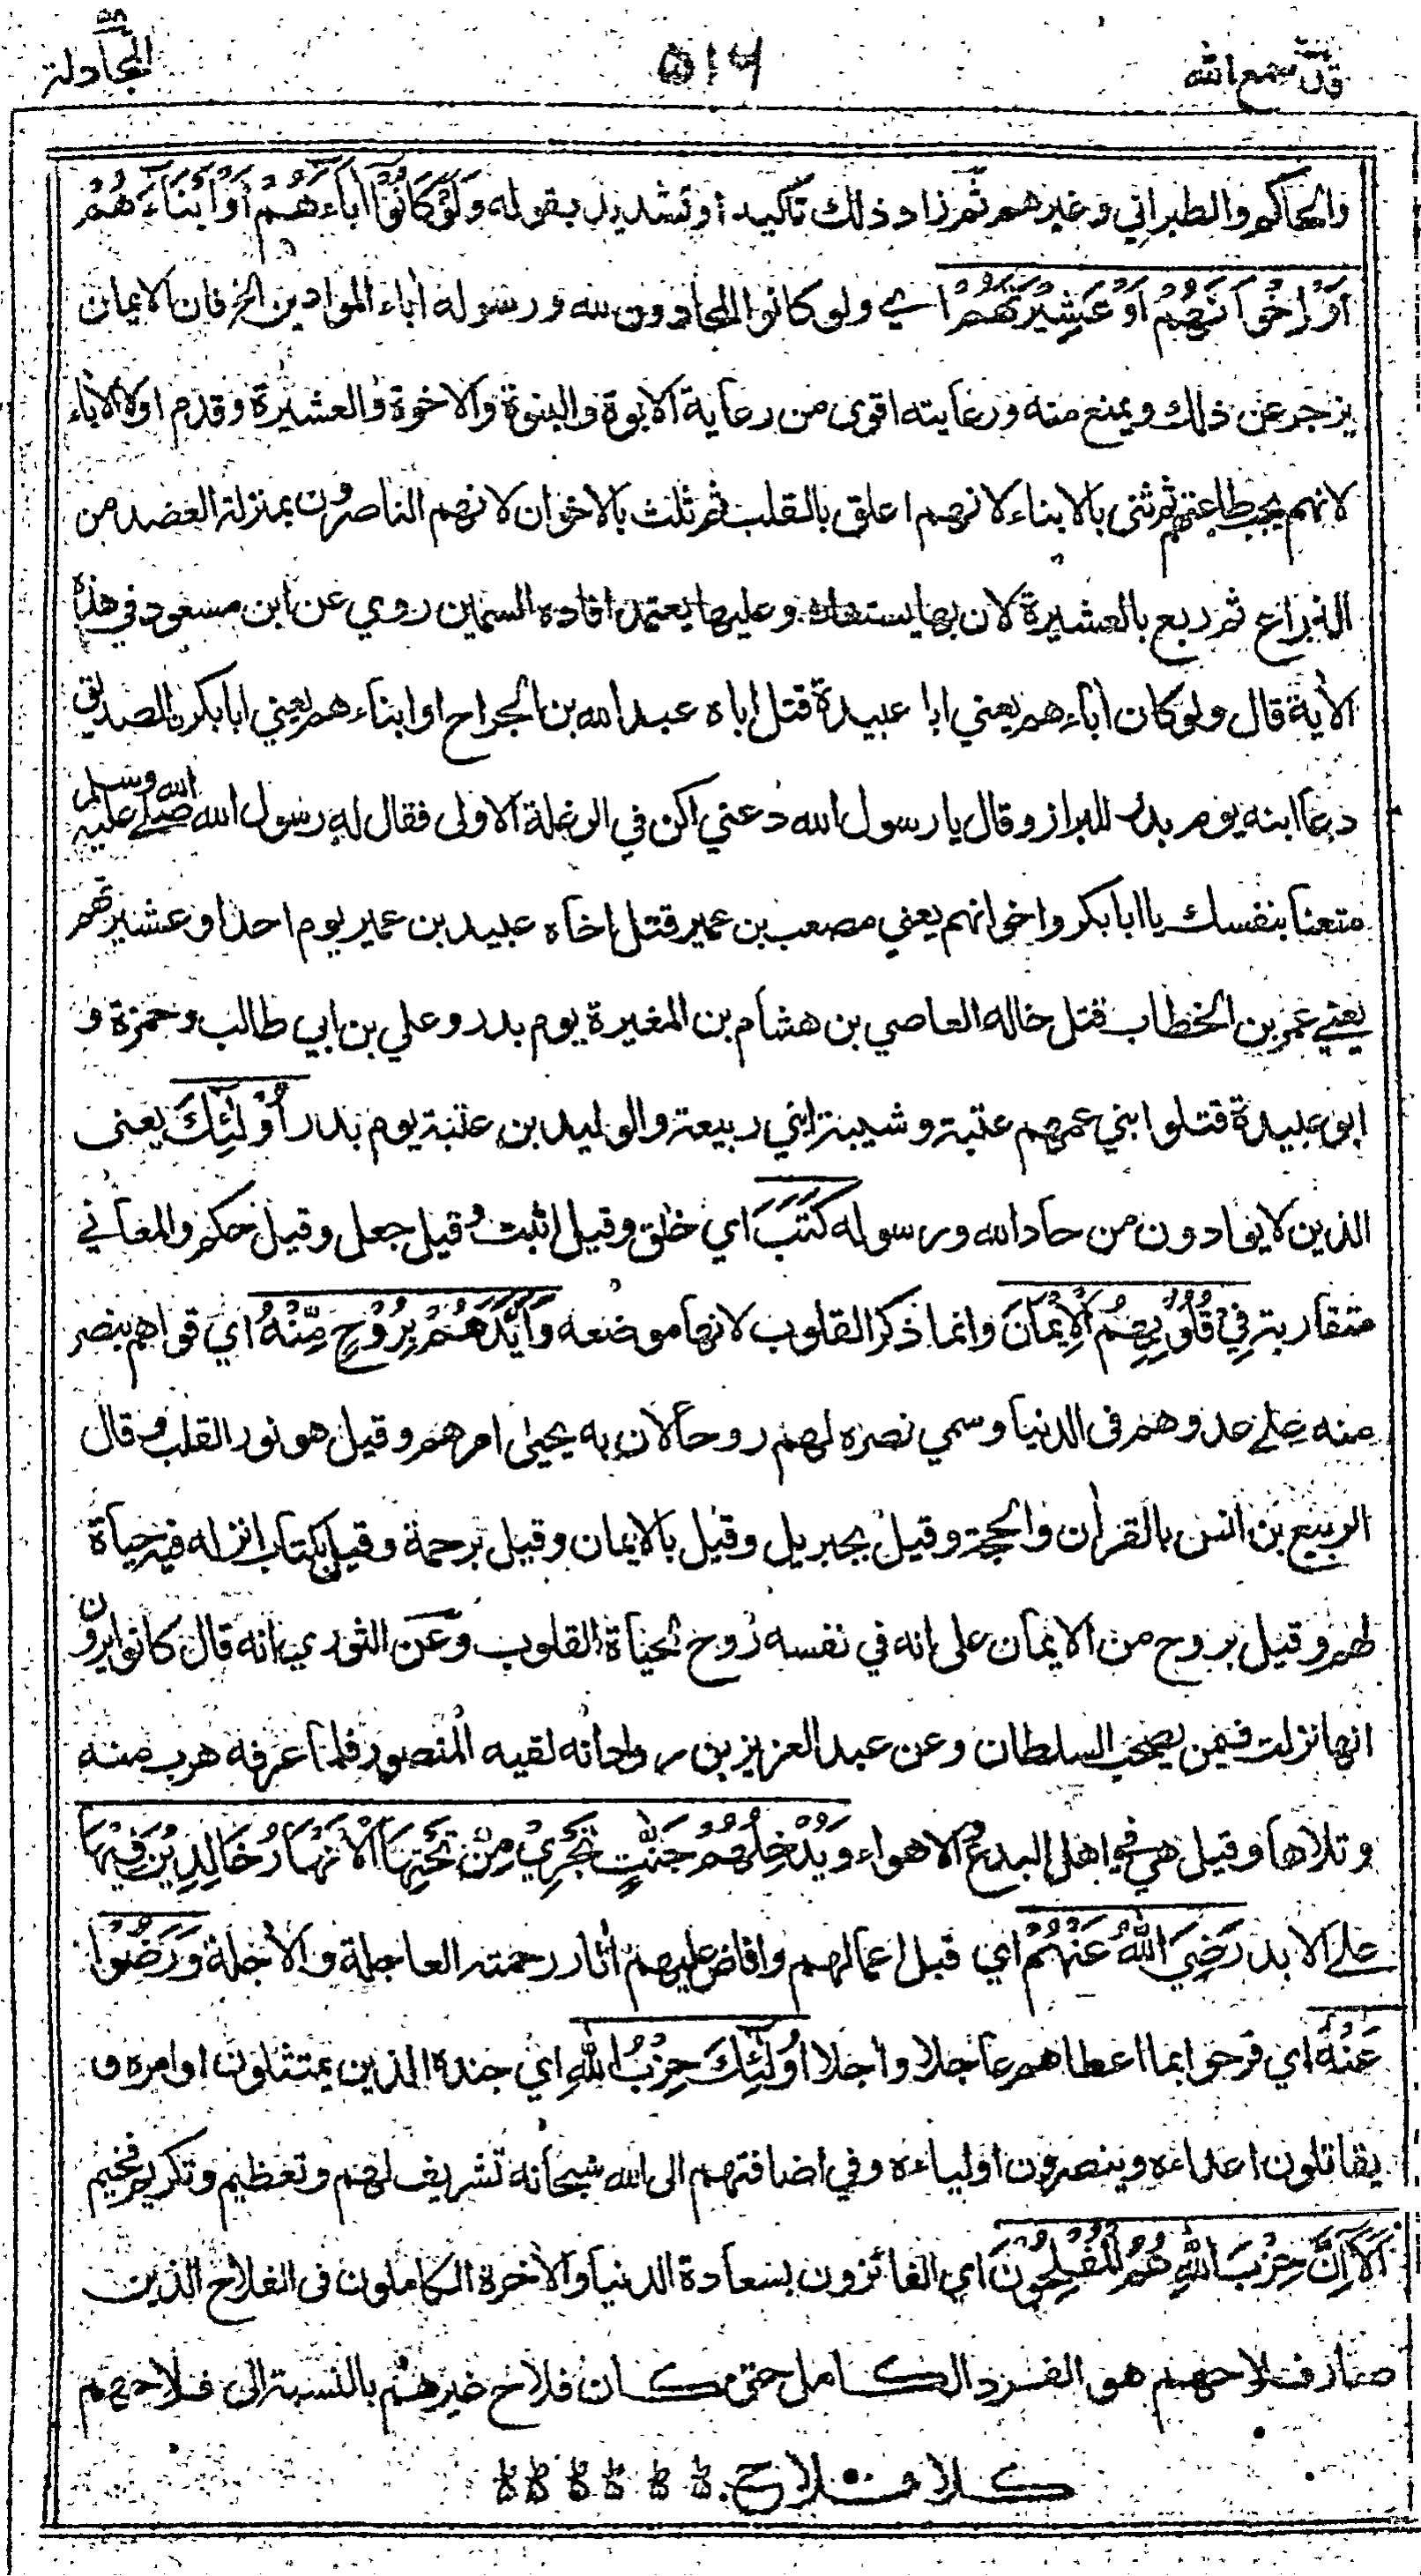 قد سمع الله ٥١٦ المجادلة ٥٨
والحاكم والطبراني وغيرهم ثم زاد ذلك تأكيدا وتشديدا بقوله وَلَوْ كَانُوْٓا اٰبَآءَهُمْ اَوْ اَبْنَآءَهُمْ
اَوْ اِخْوَانَهُمْ اَوْ عَشِيْرَتَهُمْ اي ولو كانوا المحادون لله ورسوله اٰباء الموادين الخ فان الايمان
يزجر عن ذلك ويمنع منه ورعايته اقوى من رعاية الابوة والبنوة والاخوة والعشيرة وقدم اولا الاٰباء
لانهم يجب طاعتهم ثم ثنى بالابناء لانهم اعلق بالقلب ثم ثلث بالاخوان لانهم الناصرون بمنزلة العضد من
الذراع ثم ربع بالعشيرة لان بها يستغاث وعليها يعتمد افاده السمين روي عن ابن مسعود في هذه
الاٰية قال ولو كان اٰباءهم يعني ابا عبيدة قتل اباه عبد الله بن الجراح او ابناءهم يعني ابا بكر الصديق
دعا ابنه يوم بدر للبراز وقال يا رسول الله دعني اكن في الرعلة الاولى فقال له رسول الله صلى الله عليه وسلم
متعنا بنفسك يا ابا بكر واخوانهم يعني مصعب بن عمير قتل اخاه عبيد بن عمير يوم احد او عشيرتهم
يعني عمر بن الخطاب قتل خاله العاصي بن هشام بن المغيرة يوم بدر وعلي بن ابي طالب وحمزة و
ابو عبيدة قتلوا ابني عمهم عتبة وشيبة ابني ربيعة والوليد بن عتبة يوم بدر اُولٰٓئِكَ يعنى
الذين لا يوادون من حاد الله ورسوله كَتَبَ اي خلق وقيل اثبت وقيل جعل وقيل حكم والمعاني
متقاربة فِيْ قُلُوْبِهِمُ الْاِيْمَانَ وانما ذكر القلوب لانها موضعه وَاَيَّدَهُمْ بِرُوْحٍ مِّنْهُ اي قواهم بنصر
منه على عدوهم فى الدنيا وسمي نصره لهم روحا لان به يحيى امرهم وقيل هو نور القلب وقال
الربيع بن انس بالقراٰن والحجة وقيل بجبريل وقيل بالايمان وقيل برحمة وقيل بكتاب انزله فيه حياة
لهم وقيل بروح من الايمان على انه في نفسه روح لحياة القلوب وعن الثوري انه قال كانوا يرون
انها نزلت فيمن يصحب السلطان وعن عبد العزيز بن رواد انه لقيه المنصور فلما عرفه هرب منه
وتلاها وقيل هي في اهل البدع والاهواء وَيُدْخِلُهُمْ جَنّٰتٍ تَجْرِيْ مِنْ تَحْتِهَا الْاَنْهَارُ خَالِدِيْنَ فِيْهَا
على الابد رَضِيَ اللهُ عَنْهُمْ اي قبل اعمالهم وافاض عليهم اٰثار رحمته العاجلة والاٰجلة وَرَضُوْا
عَنْهُ اي فرحوا بما اعطاهم عاجلا واٰجلا اُولٰٓئِكَ حِزْبُ اللهِ اي جنده الذين يمتثلون اوامره و
يقاتلون اعداءه وينصرون اولياءه وفي اضافتهم الى الله سبحانه تشريف لهم وتعظيم وتكريم فخيم
اَلَآ اِنَّ حِزْبَ اللهِ هُمُ الْمُفْلِحُوْنَ اي الفائزون بسعادة الدنيا والاٰخرة الكاملون فى الفلاح الذين
صار فلاحهم هو الفرد الكامل حتى كان فلاح غيرهم بالنسبة الى فلاحهم
كلا فلاح.